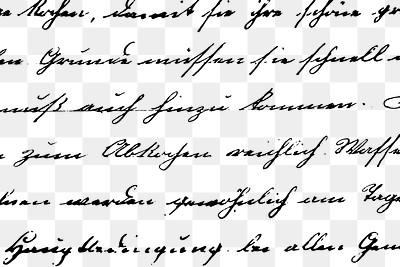 kochen, damit sie ihre schöne gr
en Grunde müssen sie schnell
muß auch hinzu kommen.
zum Abkochen reichlich Wasse
werden gewöhnlich am Tage
Hauptbedingung bei allen Gem